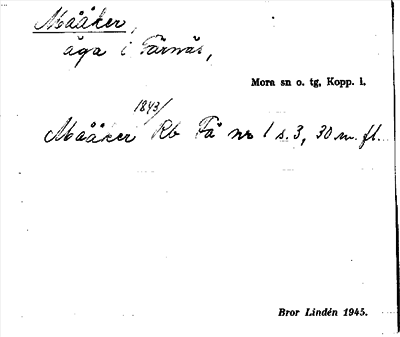 Mååker,
äga i Färnäs,
Mora sn o. tg, Kopp. l.
1843/
Mååker Rb Få nr 1 s. 3, 30 m. fl.
Bror Lindén 1945.